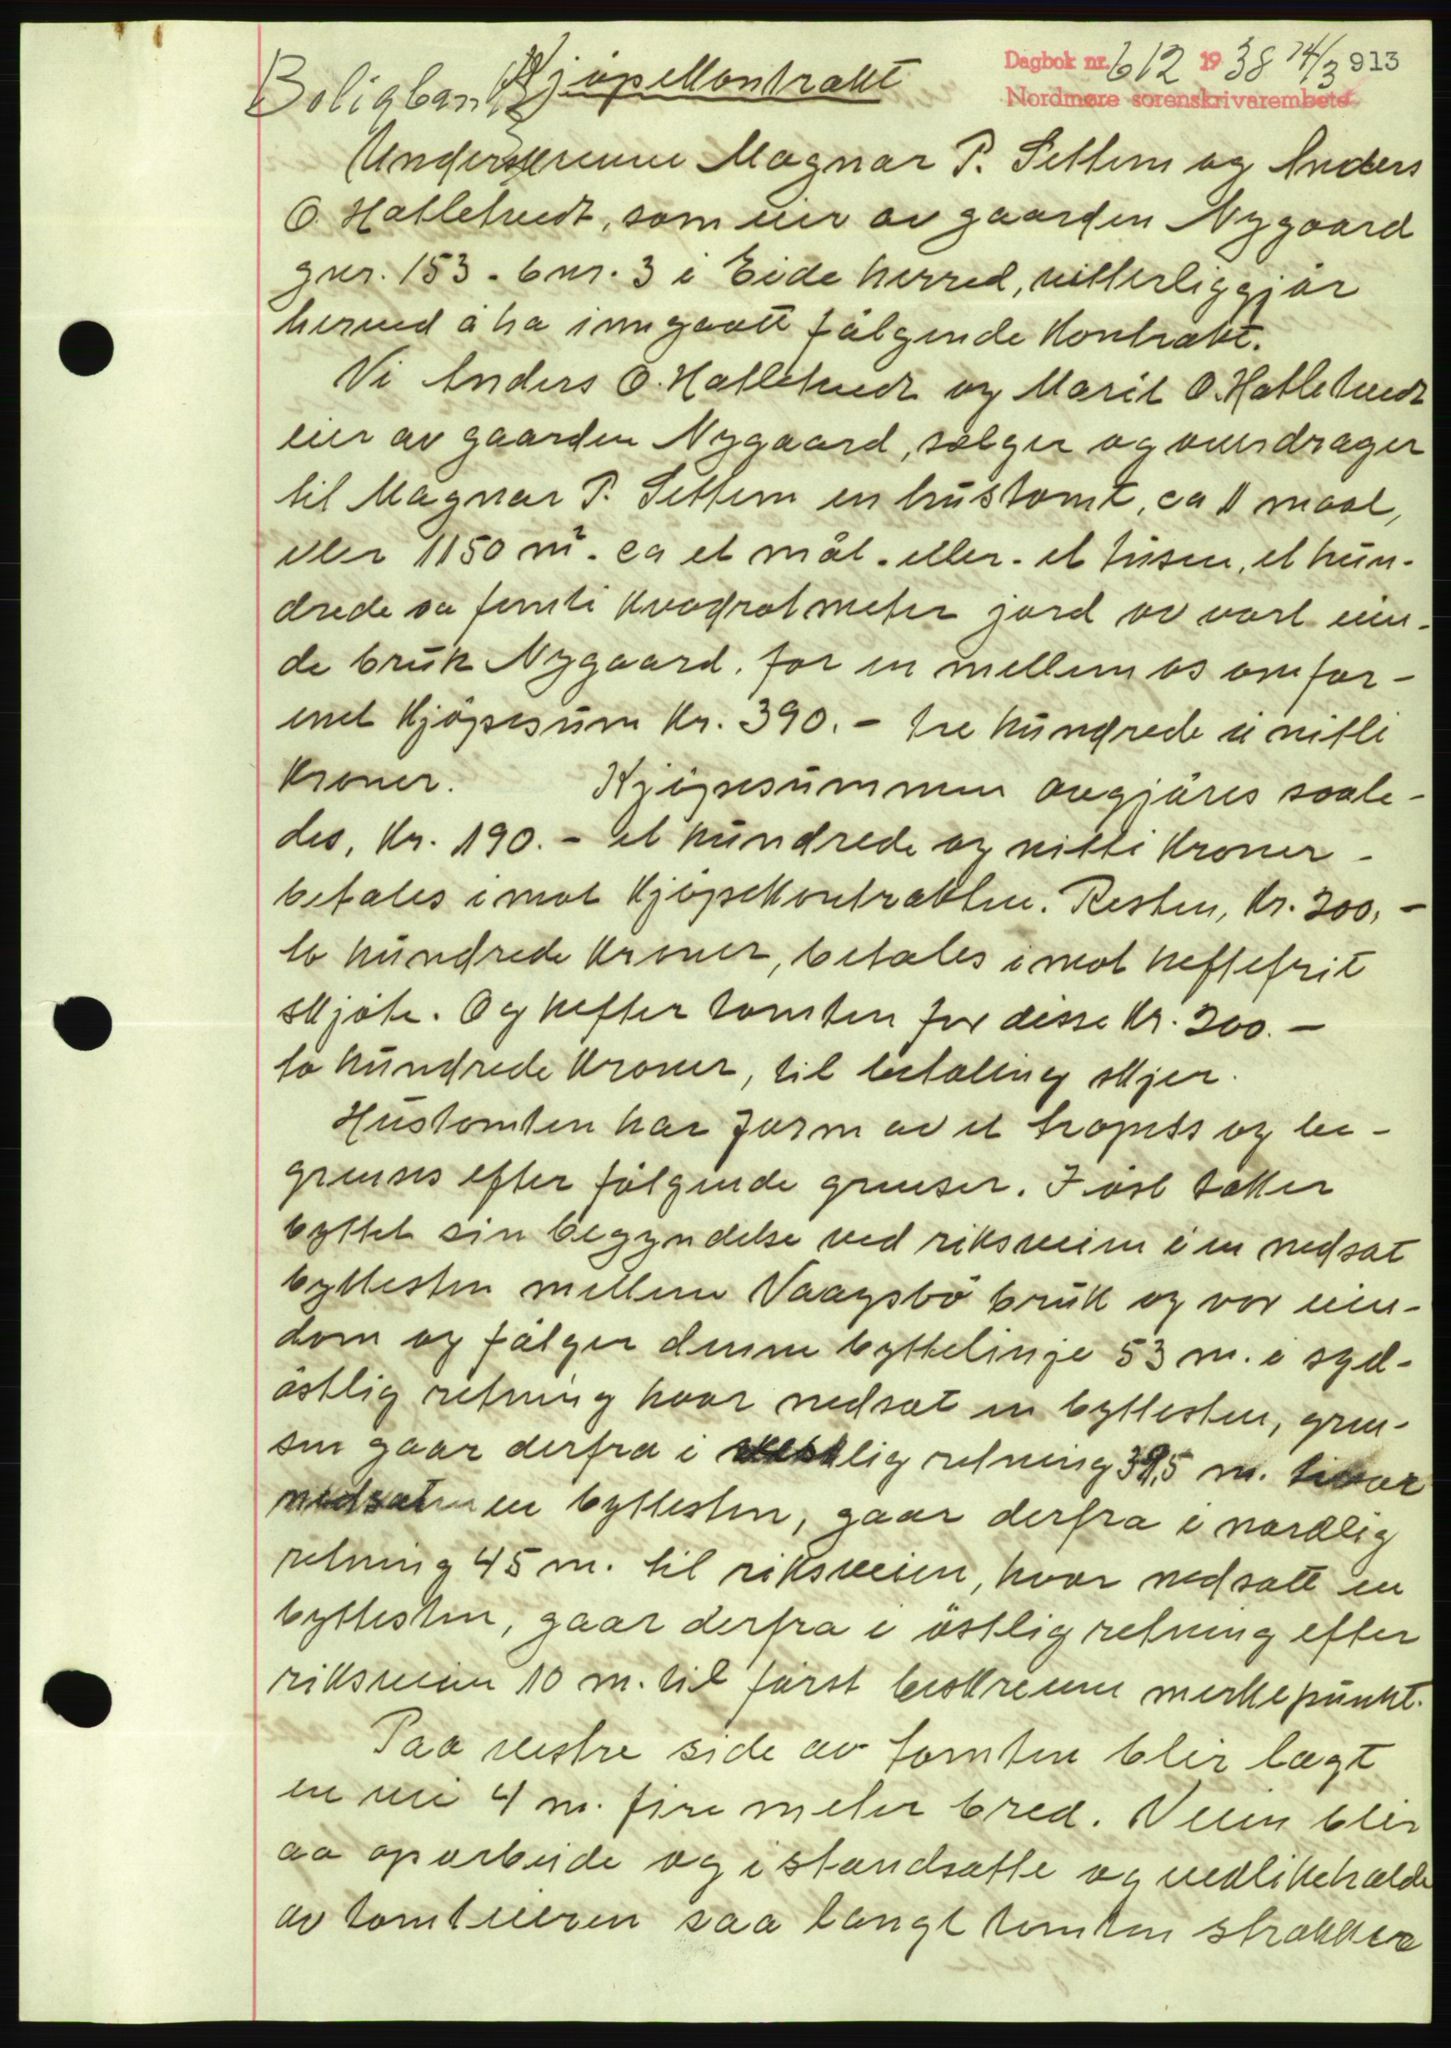 Dagbok nr. 612 1938 14/3 913
Nordmøre sorenskrivarembete
Boligbank
Kjöpekontrakt
Underskrevne Magnar P. Settem og Anders
O. Hatletvedt, som eier av gaarden Nygaard
gnr. 153 - bnr. 3 i Eide herred, vitterliggjör
herved å ha inngaatt fölgende kontrakt.
Vi Anders O. Hatletvedt og Marit O. Hatletvedt
eier av gaarden Nygaard, sælger og overdrager
til Magnar P. Settem en hustomt, ca 1 maal,
eller 1150 m² - ca et mål - eller - et tusen, et hun-
drede oa femti kvadratmeter jord av vort eien-
de bruk Nygaard, for en mellem os omfor-
enet kjöpesum kr. 390.- tre hundrede u nitti
kroner. Kjöpesummen avgjöres saale-
des, kr. 190.- et hundrede og nitti kroner -
betales imot kjöpekontrakten. Resten, kr. 200.-
to hundrede kroner, betales imot heftefrit
skjöte. Og hefter tomten for disse kr. 200.-
to hundrede kroner, til betaling skjer.
Hustomten har form av et trapets og be-
grenses efter fölgende grenser. I öst takker
byttet sin begyndelse ved riksveien i en nedsat
byttesten mellem Vaagsbö bruk og vor eien-
dom og fölger denne byttelinje 53 m. i syd-
östlig retning hvor nedsat en byttesten, gren-
sen gaar derfra i vestlig retning 39,5 m. hvor
nedsat en byttesten, gaar derfra i nordlig
retning 45 m. til riksveien, hvor nedsatt en
byttesten, gaar derfra i östlig retning efter
riksveien 10 m. til först beskrevne merkepunkt.
Paa vestre side av tomten blir lagt
en vei 4 m. fire meter bred. Veien blir
aa oparbeide og istandsatte og vedlikeholde
av tomteieren saa langt tomten strækker